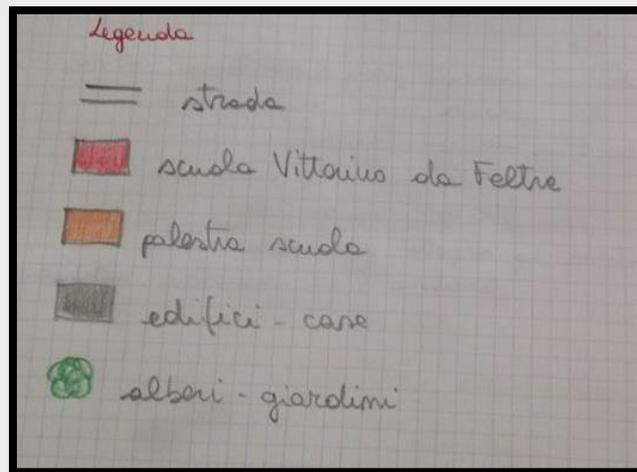 Legenda
strada
scuola Vittorino da Feltre
palestra scuola
edifici - case
alberi - giardini